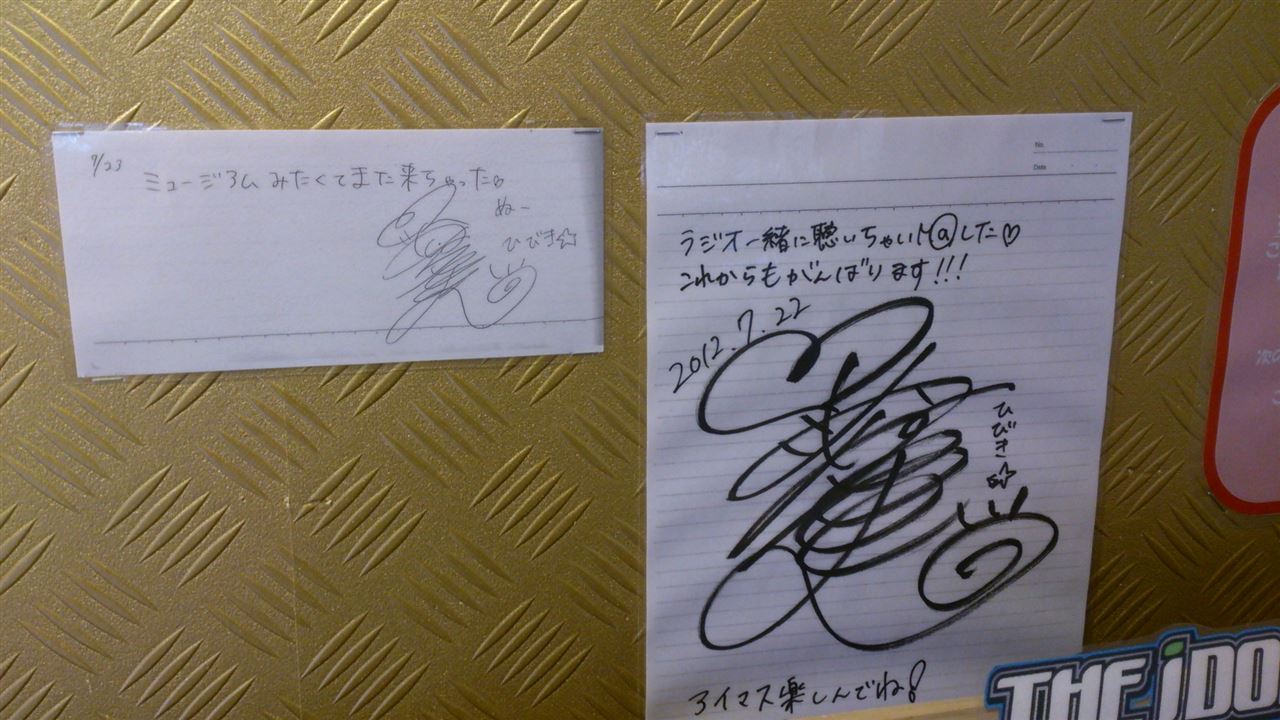 7/23
ミュージアムみたくてまた来ちゃった♡
ぬー
ひびき☆
No.
Date
ラジオ一緒に聴いちゃいMⓐした♡
これからもがんばります!!!
2012.7.22
ひびき
アイマス楽しんでね!
THE iDO